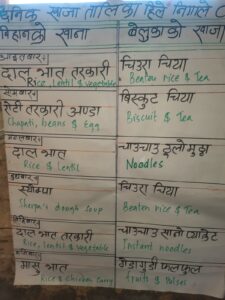 दैनिक खाजा तालिका हिले निगाले
बिहानको खाना
बेलुकाको खाजा
आइतबार
दाल भात तरकारी
Rice, Lentil & vegetable
चिउरा चिया
Beaten rice & Tea
सोमबार
रोटी तरकारी अण्डा
Chapati, beans & Egg
बिस्कुट चिया
Biscuit & Tea
मंगलबार
दाल भात
Rice & Lentil
चाउचाउ
Noodles
बुधबार
स्याम्पा
Sherpa's dough Soup
चिउरा चिया
Beaten rice & Tea
बिहिबार
दाल भात तरकारी
Rice, lentil & vegetable
चाउचाउ सानो प्याकेट
Instant noodles
मासु भात
Rice & Chicken Curry
गेडागुडी फलफूल
fruits & Pulses